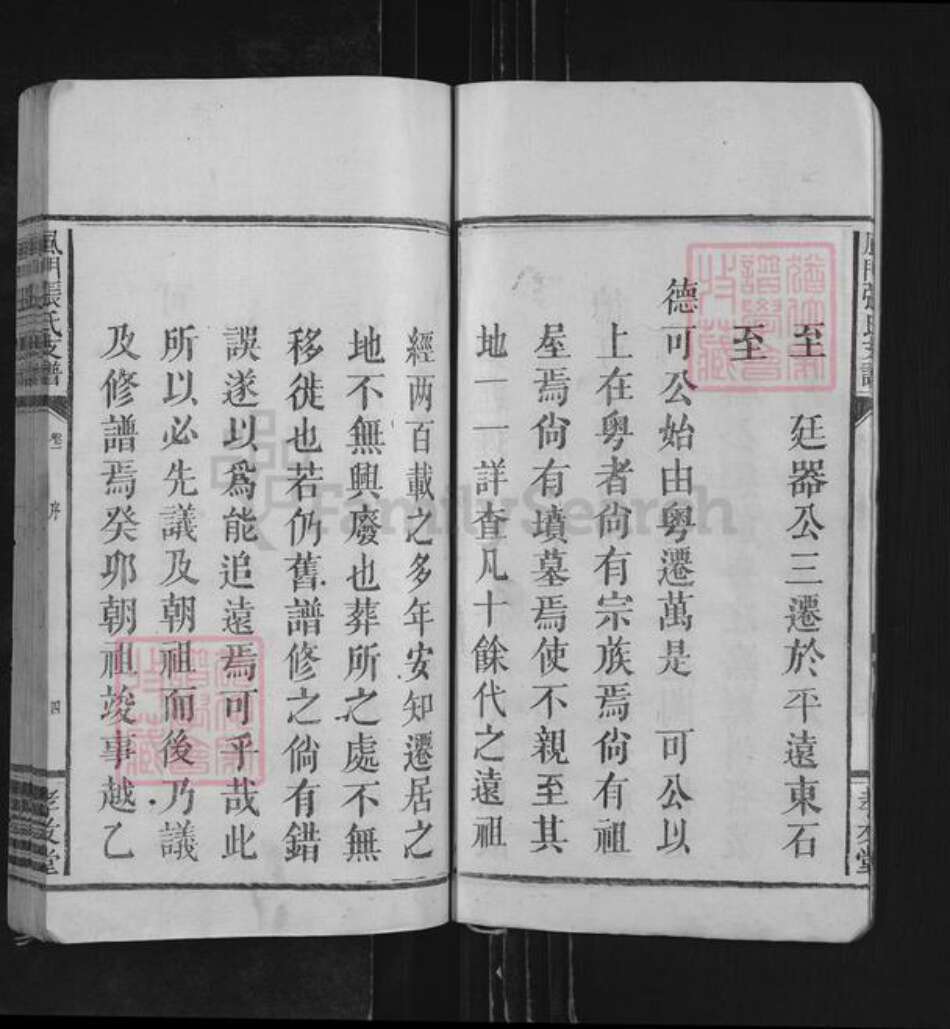 至 廷器公三遷於平遠東石
至
德可公始由粵遷萬是 可公以
上在粵者尙有宗族焉尙有祖
屋焉尙有墳墓焉使不親至其
地一一詳查凡十餘代之遠祖
經两百載之多年安知遷居之
地不無興廢也葬所之處不無
移徙也若仍舊譜修之倘有錯
誤遂以爲能追遠焉可乎哉此
所以必先議及朝祖而後乃議
及修譜焉癸卯朝祖竣事越乙
張氏支譜
卷一
序
四
堂
FamilySearch